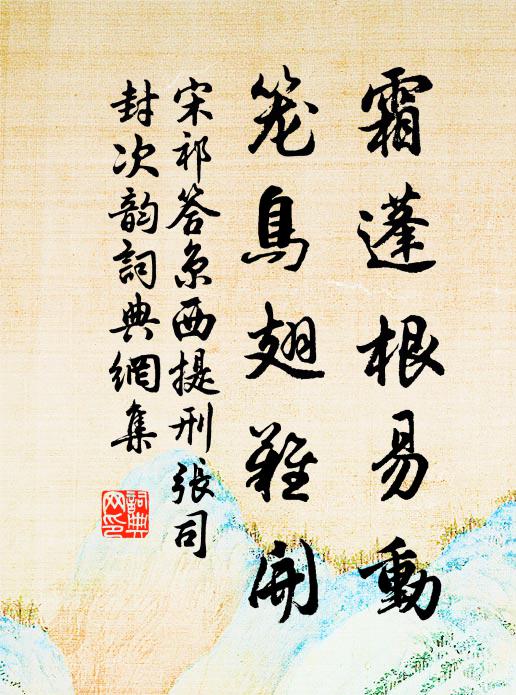 霜蓬根易動
笼鳥翅難開
宋祁答京西提刑張司
封次韵詞典網集
詞典网印